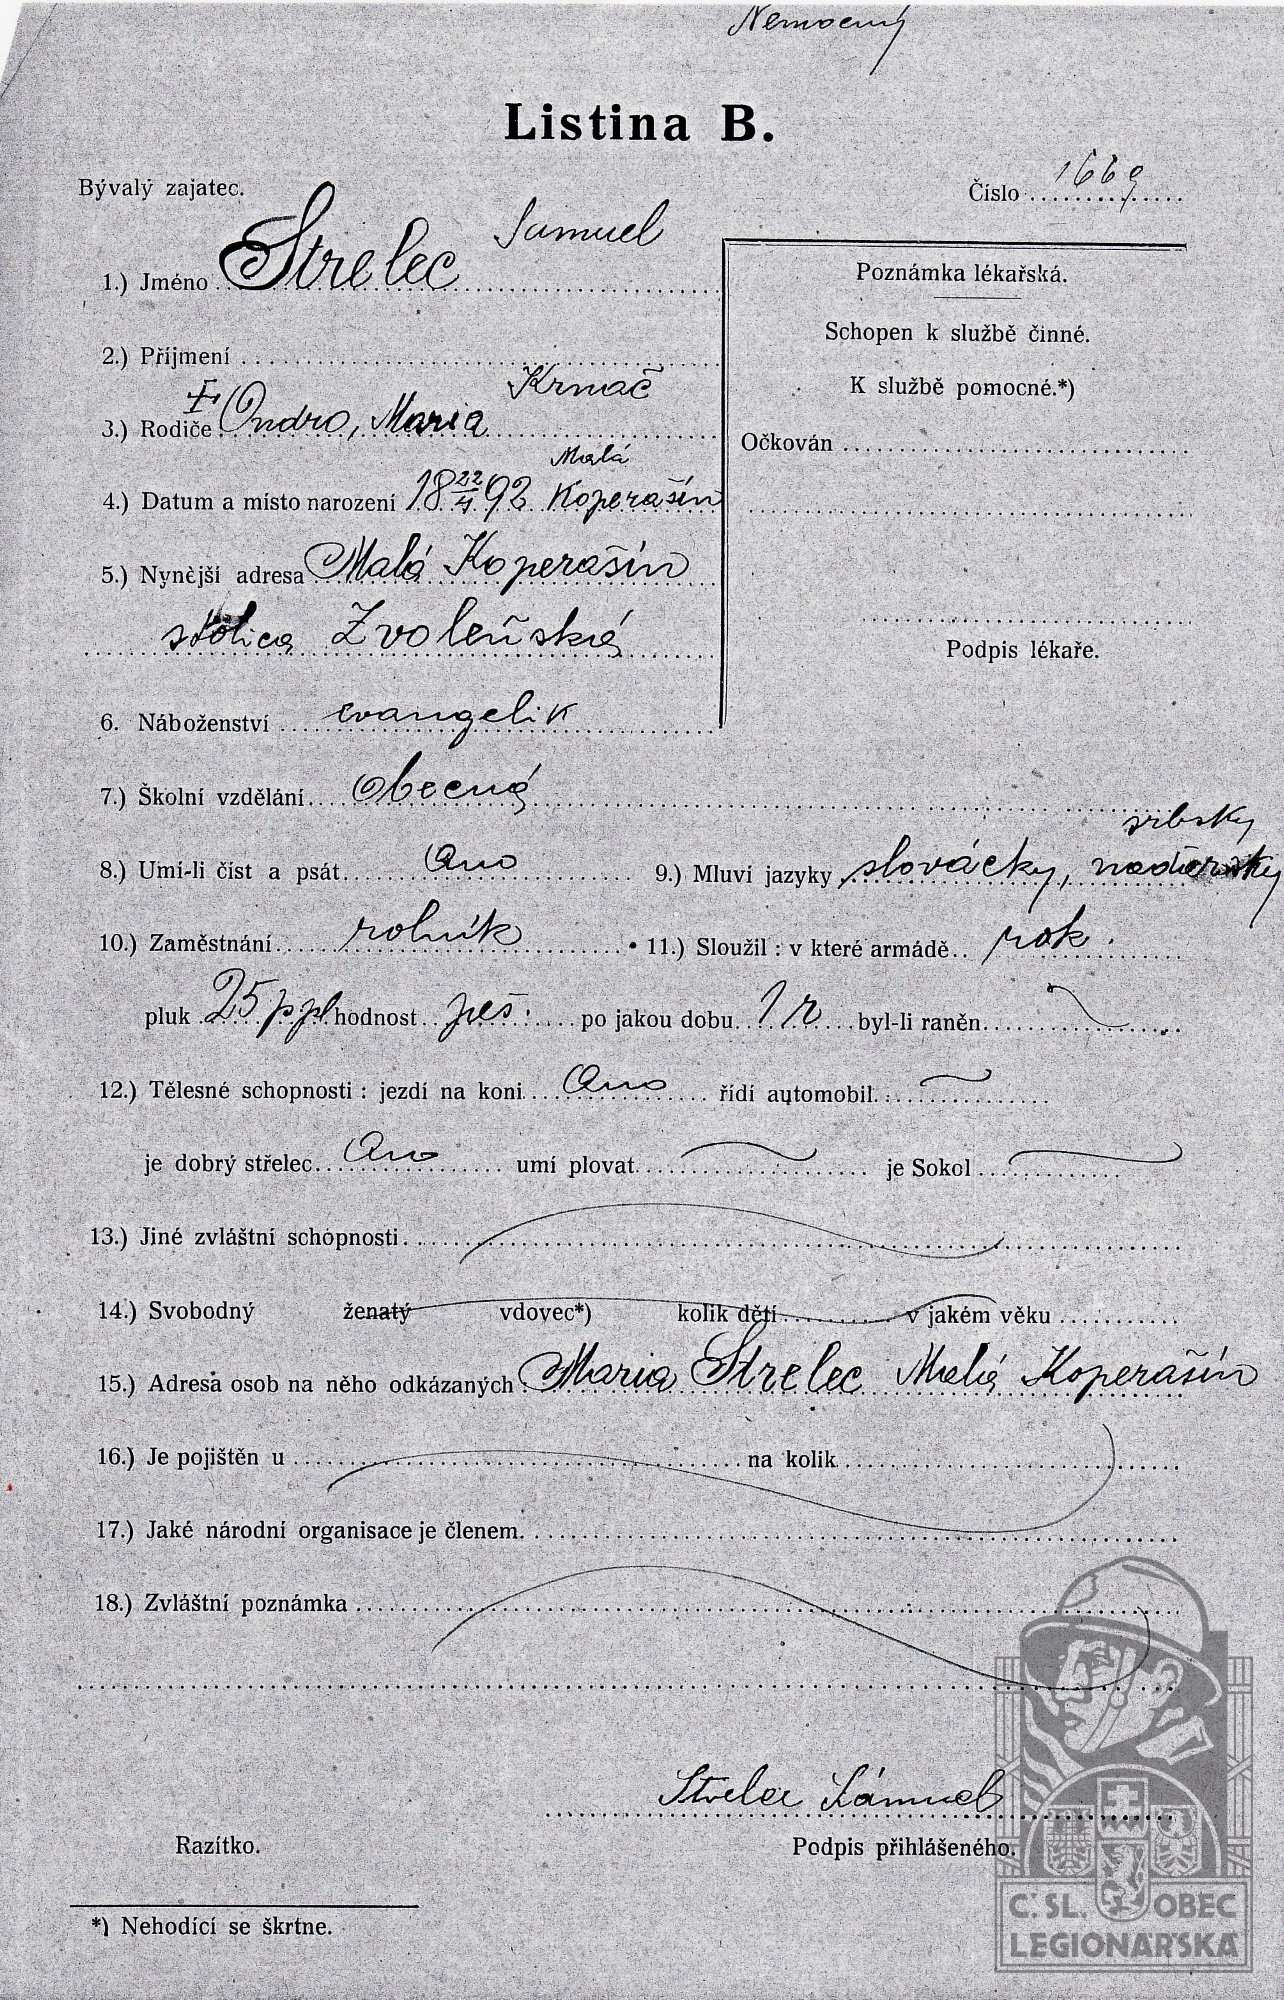 Nemocný
Listina B.
Bývalý zajatec.
Číslo 1669
Samuel
1.) Jméno Strelec
Poznámka lékařská.
Schopen k službě činné.
2.) Příjmení
K službě pomocné.*)
Krnač
3.) Rodiče Ondro, Maria
Očkován
Malá
4.) Datum a místo narození 18 22/4 92 Koperašín
5.) Nynější adresa Malá Koperašín
stolica Zvoleňská
Podpis lékaře.
6. Náboženství evangelik
7.) Školní vzdělání Obecná
srbsky
8.) Umí-li číst a psát Ano 9.) Mluví jazyky slovácky, maďarsky
10.) Zaměstnání rolník 11.) Sloužil: v které armádě rok.
pluk 25 hodnost peš. po jakou dobu 1 r byl-li raněn
12.) Tělesné schopnosti: jezdí na koni Ano řídí automobil
je dobrý střelec Ano umí plovat je Sokol
13.) Jiné zvláštní schopnosti
14.) Svobodný ženatý vdovec*) kolik dětí v jakém věku
15.) Adresa osob na něho odkázaných Maria Strelec Malá Koperašín
16.) Je pojištěn u na kolik
17.) Jaké národní organisace je členem
18.) Zvláštní poznámka
Strelec Sámuel
Razítko.
Podpis přihlášeného.
*) Nehodící se škrtne.
Č. SL. OBEC
LEGIONÁŘSKÁ